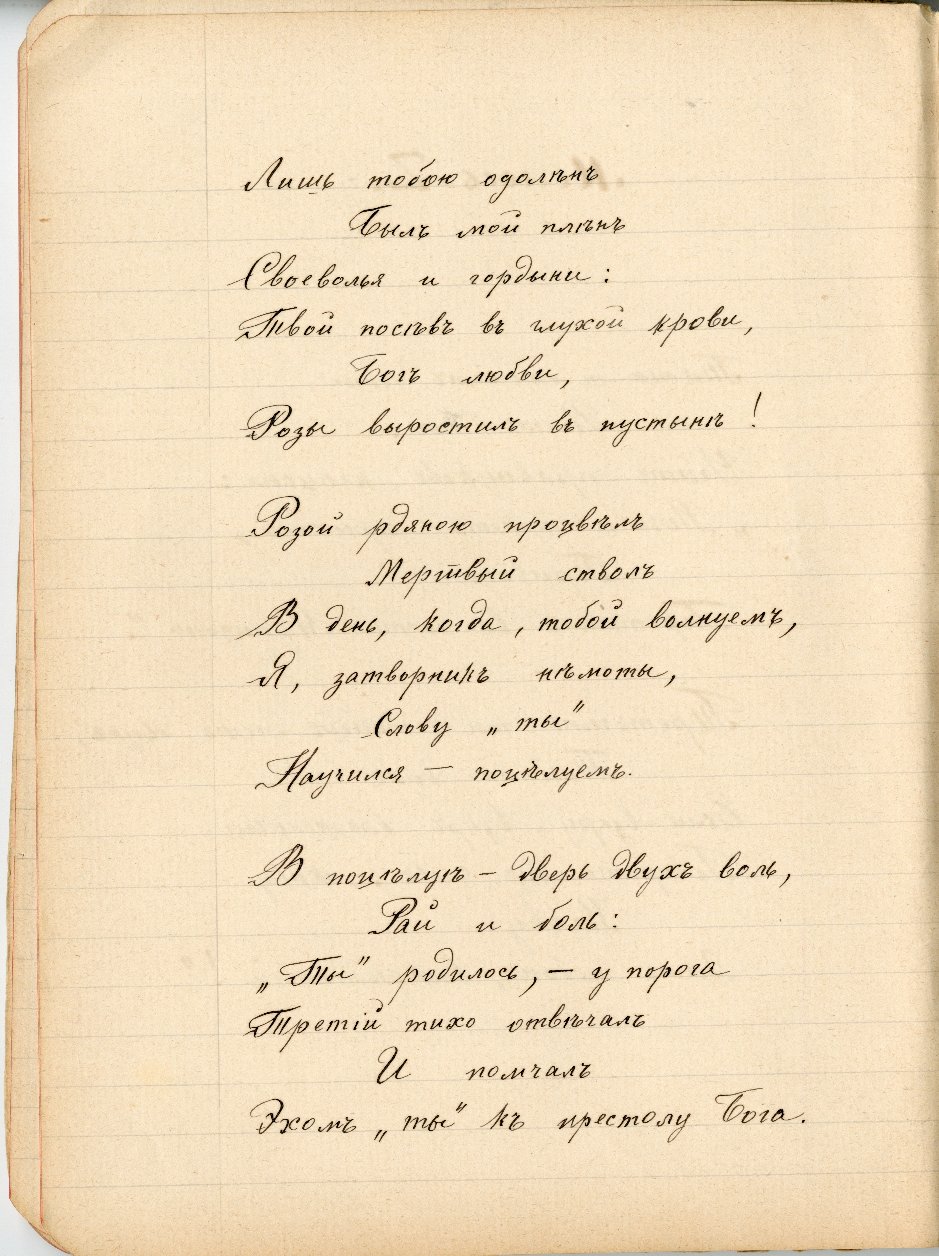 Лишь тобою одолѣнъ
Былъ мой плѣнъ
Своеволья и гордыни:
Твой посѣвъ въ глухой крови,
Богъ любви,
Розы выростилъ въ пустынѣ!
Розой рдяною процвѣлъ
Мертвый стволъ
В день, когда, тобой волнуемъ,
Я, затворникъ нѣмоты,
Слову „ты“
Научился — поцѣлуемъ.
В поцѣлуѣ — дверь двухъ воль,
Рай и боль:
„Ты“ родилось, — у порога
Третій тихо отвѣчалъ
И помчалъ
Эхомъ „ты“ къ престолу Бога.